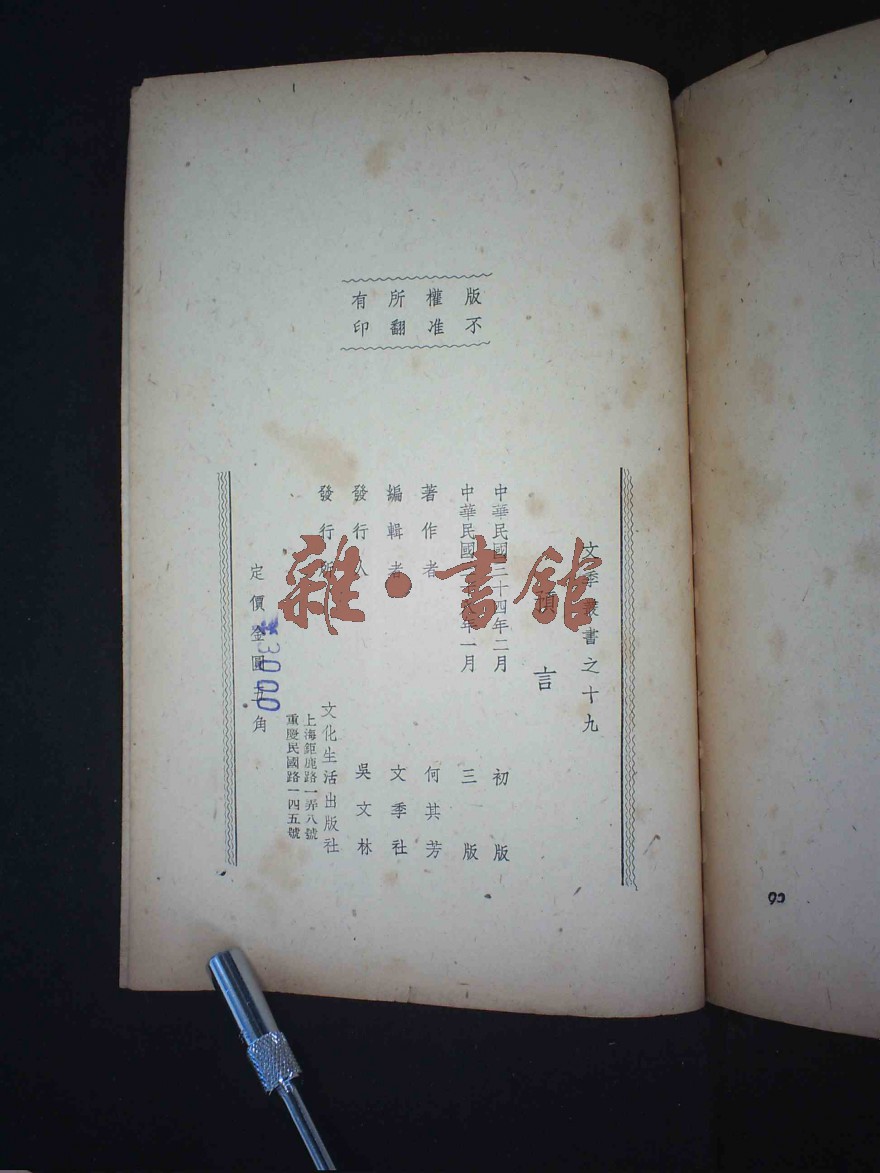 版權所有
不准翻印
文季叢書之十九
預言
中華民國三十四年二月 初版
中華民國 年一月 三版
著作者 何其芳
編輯者 文季社
發行人 吳文林
發行所 文化生活出版社
上海鉅鹿路一弄八號
重慶民國路一四五號
定價金圓五角
3000
雜·書館